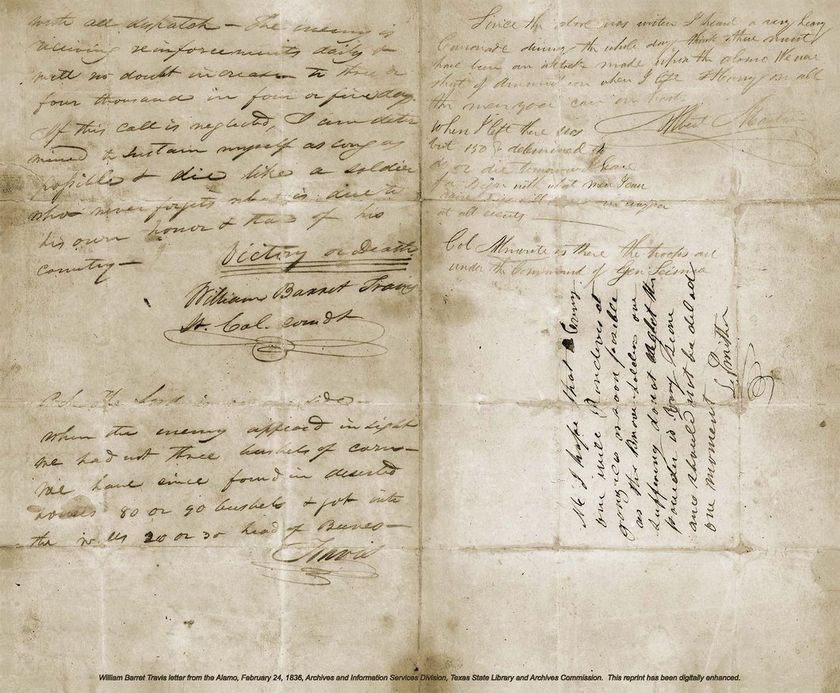 with all dispatch — The enemy is
receiving reinforcements daily &
will no doubt increase to three or
four thousand in four or five days.
If this call is neglected, I am deter
mined to sustain myself as long as
possible & die like a soldier
who never forgets what is due to
his own honor & that of his
country —
Victory or Death
William Barret Travis
Lt. Col. comdt
P.S. The Lord is on our side —
When the enemy appeared in sight
we had not three bushels of corn —
We have since found in deserted
houses 80 or 90 bushels & got into
the walls 20 or 30 head of Beeves —
Travis
Since the above was written I heard a very heavy
Cannonade during the whole day think there must
have been an attack made upon the alamo We were
short of Ammunition when I left Hurry on all
the men you can in haste
Albert Martin
When I left there was
but 150 determined to
do or die tomorrow I leave
for Bejar with what men I can
at all events
Col Almonte is there the troops are
under the Command of Gen Seisma
Nb I hope that Every
one will Rendeves at
gonzales as soon poseble
as the Brave Soldiers are
suffering do not neglect the
powder is very scarce
and should not be delad
one moment
L. Smither
William Barret Travis letter from the Alamo, February 24, 1836, Archives and Information Services Division, Texas State Library and Archives Commission. This reprint has been digitally enhanced.